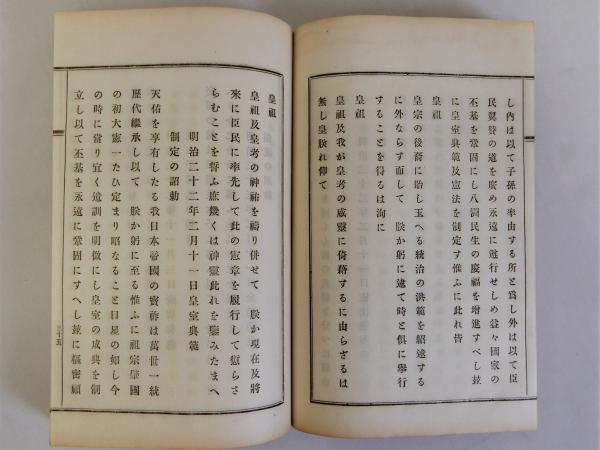 し內は以て子孫の率由する所と爲し外は以て臣
民翼贊の道を廣め永遠に遵行せしめ益々國家の
丕基を鞏固にし八洲民生の慶福を增進すべし玆
に皇室典範及憲法を制定す惟ふに此れ皆
皇祖
皇宗の後裔に貽し玉へる統治の洪範を紹述する
に外ならす而して 朕か躬に逮て時と俱に擧行
することを得るは洵に
皇祖
皇祖及我が皇考の威靈に倚藉するに由らざるは
無し皇朕れ仰て
皇祖
皇祖及皇考の神祐を禱り併せて 朕か現在及將
來に臣民に率先して此の憲章を履行して愆らさ
らむことを誓ふ庶幾くは神靈此れを鑒みたまへ
明治二十二年二月十一日皇室典範
制定の詔勅
天佑を享有したる我日本帝國の寶祚は萬世一統
歷代繼承し以て 朕か躬に至る惟ふに祖宗肇國
の初大憲一たひ定まり昭なること日星の如し今
の時に當り宜く遺訓を明徵にし皇室の成典を制
立し以て丕基を永遠に鞏固にすへし玆に樞密顧
三十五